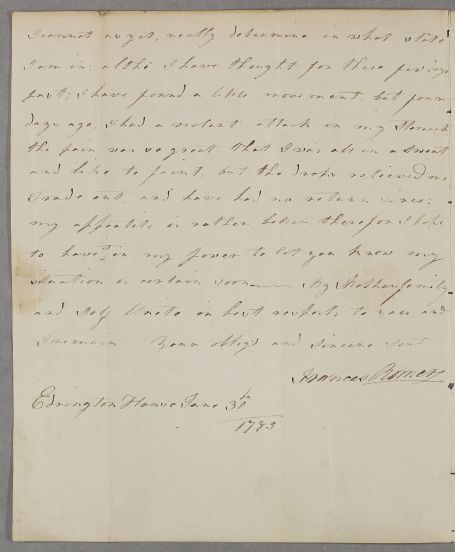 I cannot as yet, really determine in what state
I am in; altho I have thought for these few days
past; I have found a little movement, but four
days ago I had a violent attack in my Stomach
the pain was so great that I was all in a sweat
and like to faint, but the drops relieved me
I rade out, and have had no return since;
my appetite is rather better, therefor I hope
to have it in my power to let you know my
situation is certain soon — My Mother family
and Self Unite in best respects to you and
I remain Your obligd and sincere Sert
Frances
Edrington House June 3d
1785